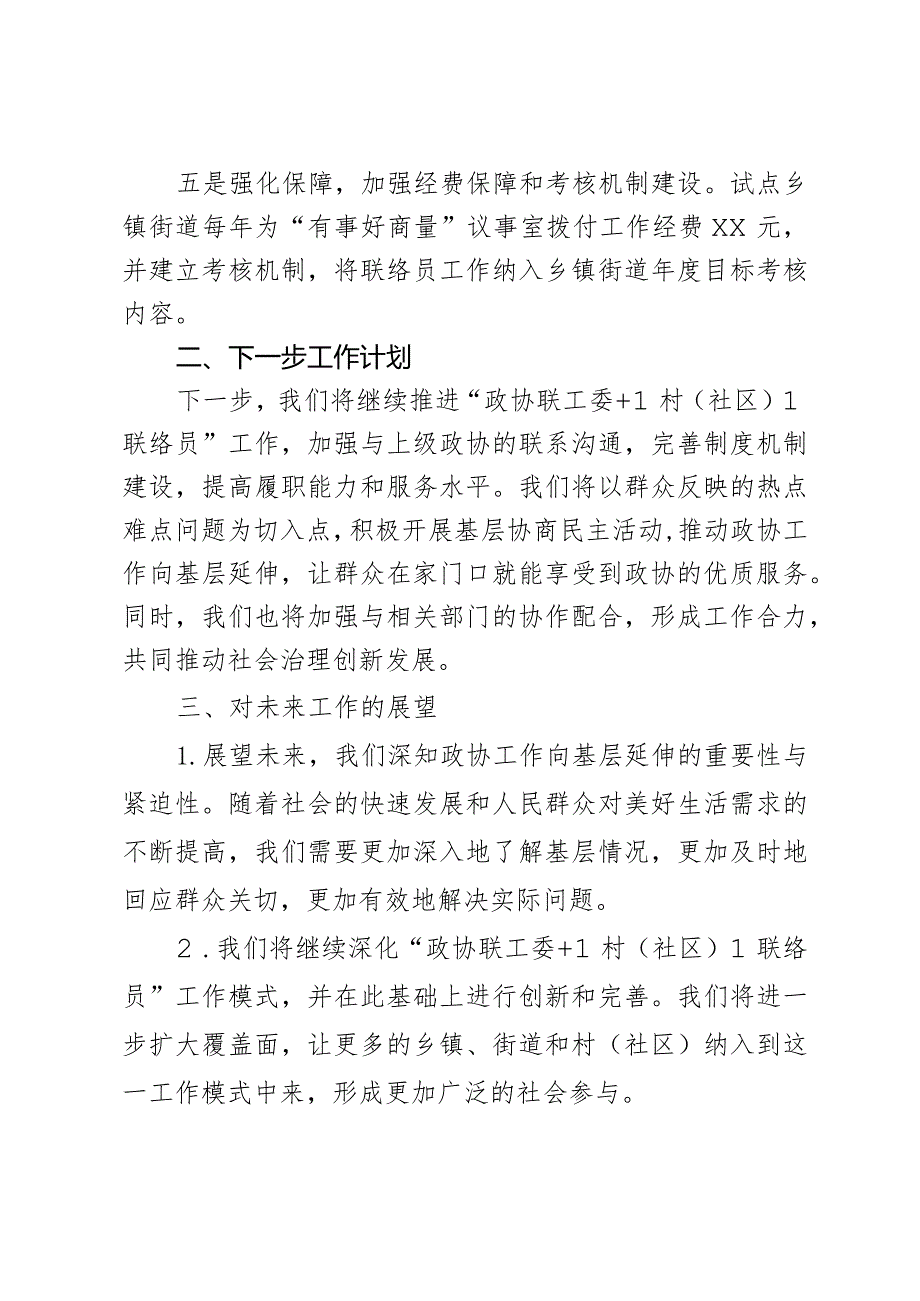 五是强化保障，加强经费保障和考核机制建设。试点乡
镇街道每年为“有事好商量”议事室拨付工作经费 XX 元，
并建立考核机制，将联络员工作纳入乡镇街道年度目标考核
内容。
二、下一步工作计划
下一步，我们将继续推进“政协联工委+1 村（社区）1
联络员”工作，加强与上级政协的联系沟通，完善制度机制
建设，提高履职能力和服务水平。我们将以群众反映的热点
难点问题为切入点,积极开展基层协商民主活动,推动政协工
作向基层延伸，让群众在家门口就能享受到政协的优质服务。
同时，我们也将加强与相关部门的协作配合，形成工作合力，
共同推动社会治理创新发展。
三、对未来工作的展望
1.展望未来，我们深知政协工作向基层延伸的重要性与
紧迫性。随着社会的快速发展和人民群众对美好生活需求的
不断提高，我们需要更加深入地了解基层情况，更加及时地
回应群众关切，更加有效地解决实际问题。
2.我们将继续深化“政协联工委+1 村（社区）1 联络
员”工作模式，并在此基础上进行创新和完善。我们将进一
步扩大覆盖面，让更多的乡镇、街道和村（社区）纳入到这
一工作模式中来，形成更加广泛的社会参与。